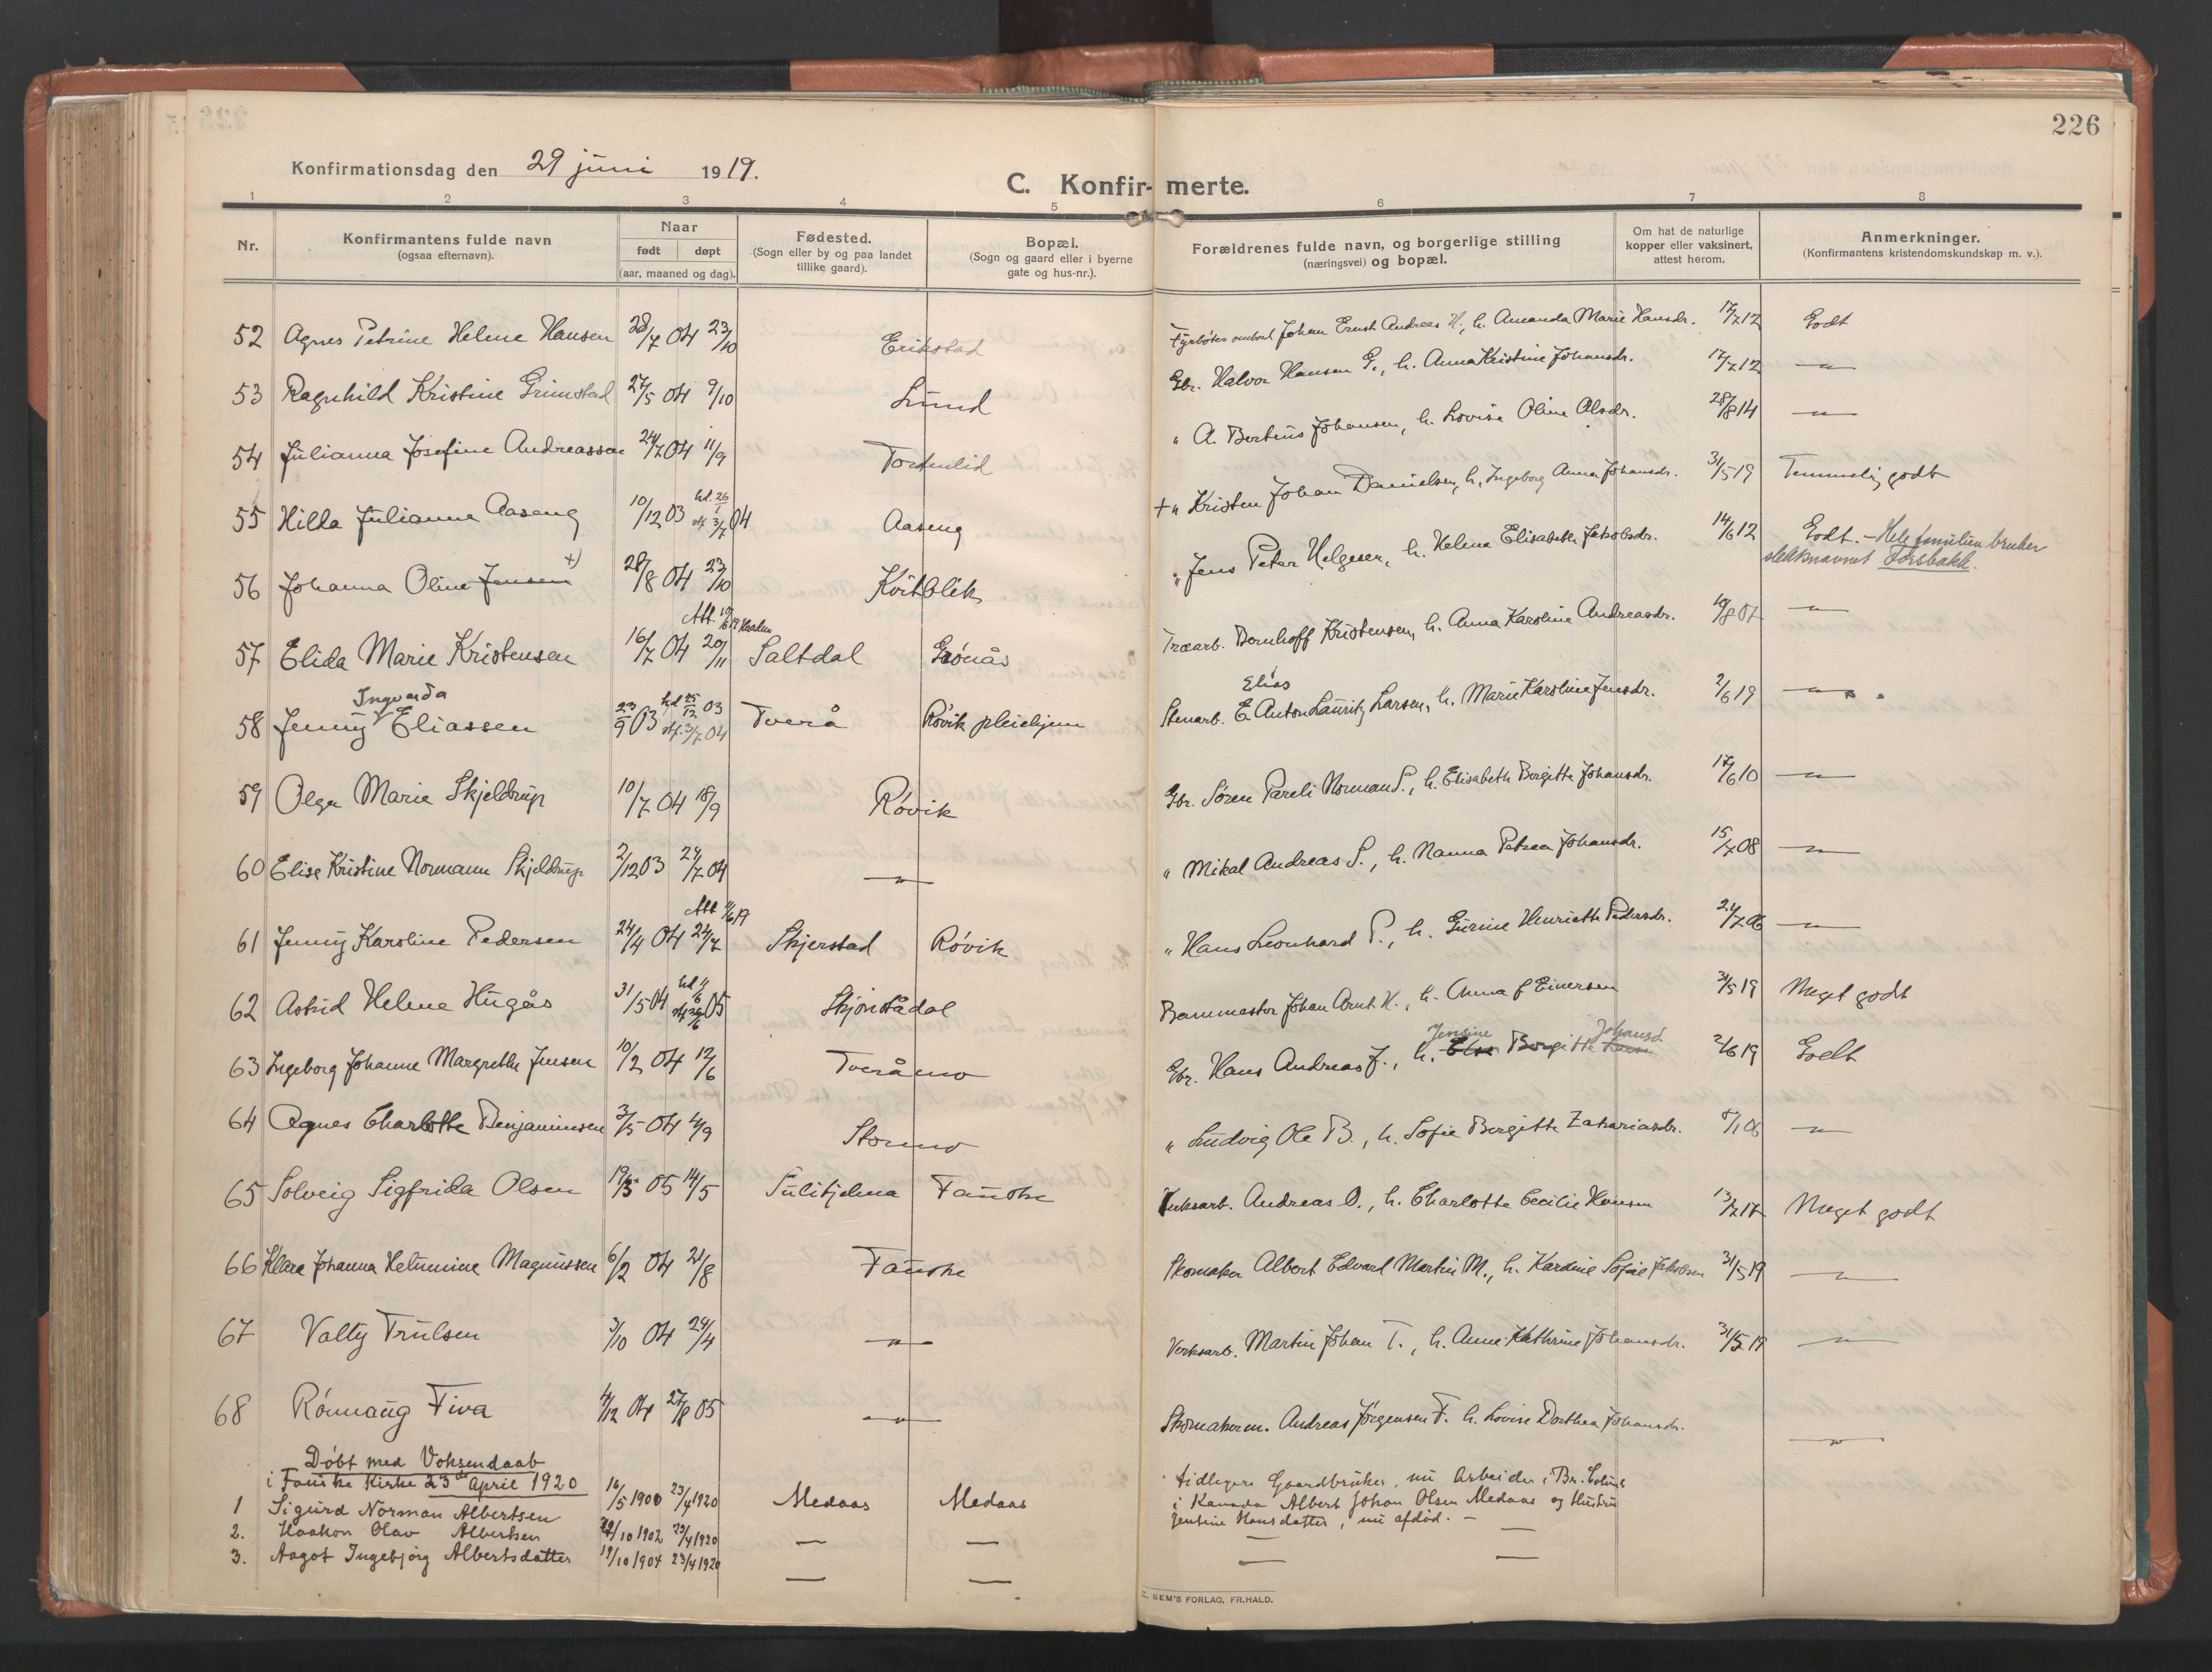 226
Konfirmationsdag den 29 juni 1919.
C. Konfir- merte.
1 2 3 4 5 6 7 8
Nr.
Konfirmantens fulde navn
(ogsaa efternavn).
Naar
født døpt
(aar, maaned og dag).
Fødested.
(Sogn eller by og paa landet
tillike gaard).
Bopæl.
(Sogn og gaard eller i byerne
gate og hus-nr.).
Forældrenes fulde navn, og borgerlige stilling
(næringsvei) og bopæl.
Om hat de naturlige
kopper eller vaksinert,
attest herom.
Anmerkninger.
(Konfirmantens kristendomskundskap m. v.).
52 Agnes Petrine Helene Hansen 28/7 04 23/10 Erikstad Fyrbøter ombord Johan Ernst Andreas H., h. Amanda Marie Hansdr. 17/7 12 Godt
53 Ragnhild Kristine Grimstad 27/5 04 9/10 Lund Gbr. Halvor Hansen G., h. Anna Kristine Johansdr. 17/7 12 —"—
54 Julianna Josefine Andreassen 24/7 04 11/9 " A. Bertëus Johansen, h. Lovise Oline Olsdr. 28/8 14 —"—
55 Hilda Julianna Aaseng 10/12 03 hd. 26/1 stf. 3/7 04 Aaseng + " Kristen Johan Danielsen, h. Ingeborg Anna Johansdr. 31/5 19 Temmelig godt
56 Johanna Oline Jensen +) 28/8 04 23/10 Kortblik " Jens Peter Helgesen, h. Helene Elisabeth Jakobsdr. 14/6 12 Godt. – Hele familien bruker
slektnavnet Forsbakk.
57 Elida Marie Kristensen 16/7 04 20/11 Saltdal Grønås Træarb. Bernhoff Kristensen, h. Anna Karoline Andreasdr. —"—
58 Jenny Ingvarda Eliassen 23/9 03 hd 25/12 03 stf. 3/7 04 Tverå Røvik pleiehjem Stenarb. E. Elias Anton Lauritz Larsen, h. Marie Karoline Jensdr. 2/6 19 —"—
59 Olga Marie Skjeldrup 10/7 04 18/9 Røvik Gbr. Søren Pareli Norman S., h. Elisabeth Bergitte Johansdr. 17/6 10 —"—
60 Elise Kristine Normann Skjeldrup 2/12 03 24/7 04 —"— " Mikal Andreas S., h. Nanna Petrea Johansdr. 15/7 08 —"—
Att 4/6 19
61 Jenny Karoline Pedersen 24/4 04 24/7 Skjerstad Røvik " Hans Leonhard P., h. Gurine Henriette Pedersdr. 21/7 06 —"—
62 Astrid Helene Hugås 31/5 04 05 Skjønstådal Banemester Johan Arnt H., h. Anna f Einersen 31/5 19 Meget godt
63 Ingeborg Johanne Margrethe Jensen 10/2 04 12/6 Tveråmo Gbr. Hans Andreas J., h. Else Jensine Bergitte Johansd. 2/6 19 Godt
64 Agnes Charlotte Benjaminsen 3/5 04 4/9 Stormo " Ludvig Ole B., h. Sofie Bergitte Zakariasdr. 8/1 06 —"—
65 Solveig Sigfrida Olsen 19/3 05 14/5 Sulitjelma Fauske Verksarb. Andreas O., h. Charlotte Cecilie Hansen 13/7 17 Meget godt
66 Klara Johanna Helmine Magnussen 6/2 04 21/8 Fauske Skomaker Albert Edvard Martin M., h. Kardine Sofie Jakobsen 31/5 19 —"—
67 Valty Trulsen 3/10 04 24/4 —"— Verksarb. Martin Johan T., h. Anne Kathrine Johansdr. 31/5 19 —"—
68 Rønnaug Fiva 4/12 04 27/8 05 —"— Skomakerm. Andreas Jørgensen F. h. Lovise Dorthea Johansdr. —"—
Døbt med Voksendaab
i Fauske Kirke 23de April 1920
1 Sigurd Norman Albertsen 16/5 1900 23/4 1920 Medaas Medaas tidligere Gaardbruker, nu Arbeider i Br. Columb
i Kanada Albert Johan Olsen Medaas og Hustru
Jensine Hansdatter, nu afdød. —
2. Haakon Olav Albertsen 10 1902 23/4 1920 — — — —
3. Aagot Ingebjørg Albertsdatter 19/10 1904 23/4 1920 — — — —
E. SEM'S FORLAG, FR.HALD.